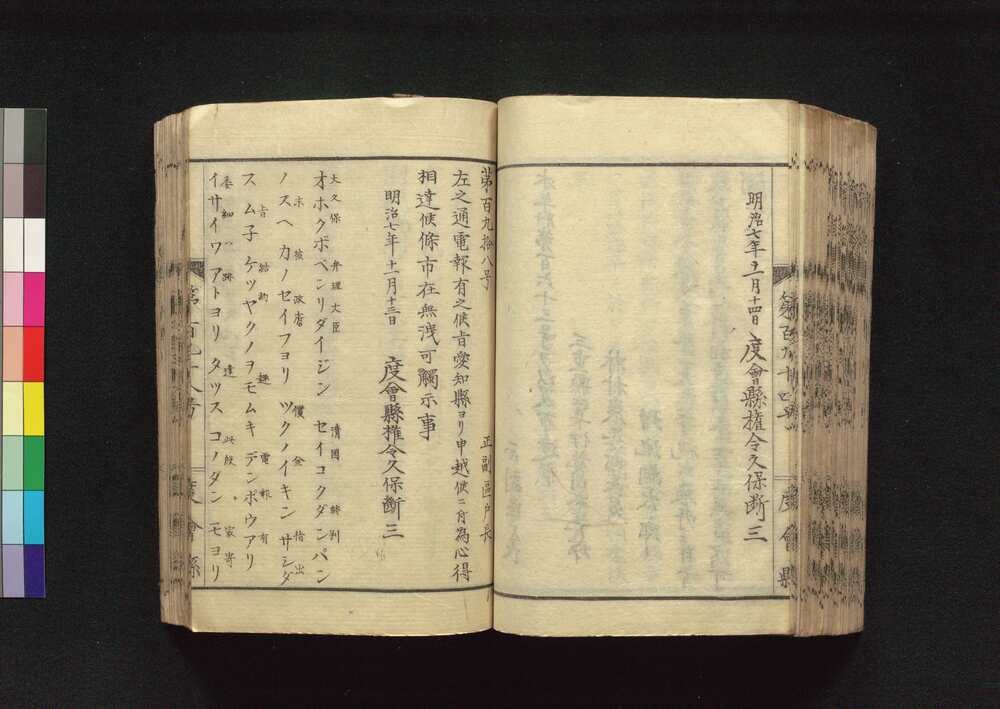 明治七年十一月十四日　度會縣権令久保断三
第百九十四号
度會縣
第百九拾八号　正副區戸長
左之通電報有之候旨愛知縣ヨリ申越候ニ付為心得
相達候條市在無洩可觸示事
明治七年十一月十三日　度會縣権令久保断三
大久保　弁理大臣　清國　談判
オホクボベンリダイジン　セイコクダンパン
末　彼　政府　償　金　指出
ノスヘ　カノセイフヨリ　ツクノイキン　サシダ
旨　結約　趣　電報　有
スムネ　ケツヤクノヲモムキ　デンポウアリ
委細ハ跡　達　此段　最寄
イサイワアトヨリ　タツスコノダン　モヨリ
第百九十八号
度會縣